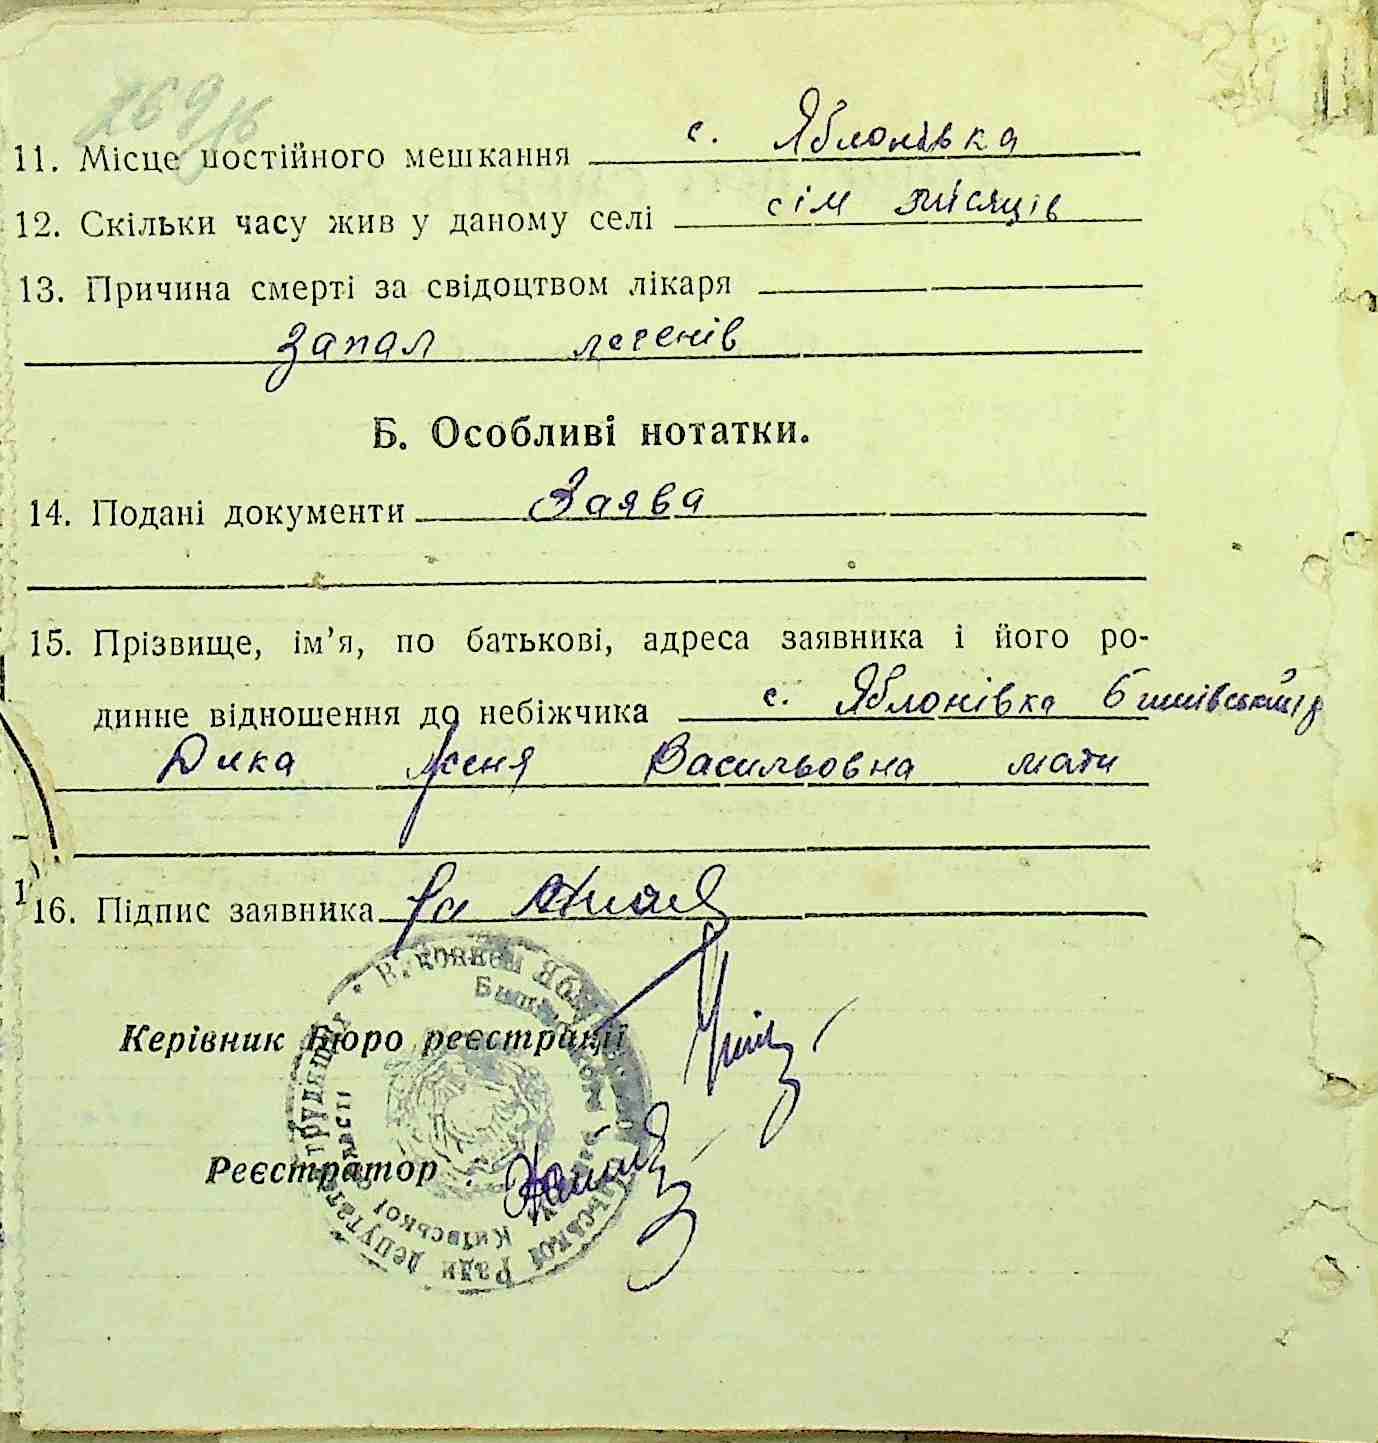 269/16
11. Місце постійного мешкання с. Яблонівка
12. Скільки часу жив у даному селі сім місяців
13. Причина смерті за свідоцтвом лікаря
Запал легенів
Б. Особливі нотатки.
14. Подані документи Заява
15. Прізвище, ім’я, по батькові, адреса заявника і його ро-
динне відношення до небіжчика с. Яблонівка
Дика Женя Васильовна мати
16. Підпис заявника
Керівник Бюро реєстрації
Реєстратор
Виконком Яблонівської сільської Ради депутатів трудящих
Київської області